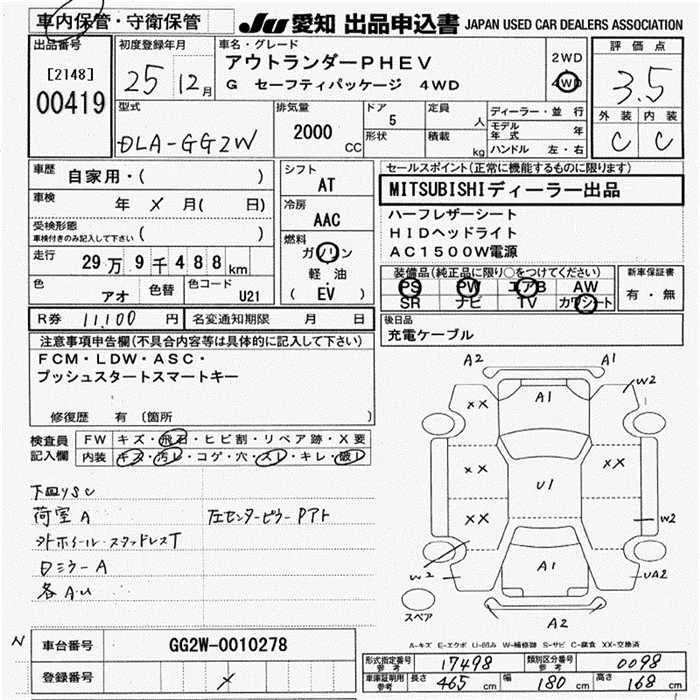 車内保管・守衛保管
JU 愛知 出品申込書 JAPAN USED CAR DEALERS ASSOCIATION
出品番号
[2148]
00419
初度登録年月
25 年 12月
車名・グレード
アウトランダーPHEV
G セーフティパッケージ 4WD
2WD
4WD
評価点
3.5
外装 内装
C C
型式
DLA-GG2W
排気量
2000 CC
ドア 5
形状
定員 人
積載 kg
ディーラー・並行
モデル年式 年
ハンドル 左・右
車歴 自家用・( )
車検 年 × 月( 日)
受検形態
車検付きのみ記入して下さい ( )
走行 29万9千488km
色 アオ 色替 色コード U21
シフト
AT
冷房
AAC
燃料
ガソリン
軽油
( EV )
セールスポイント(正常に機能するものに限ります)
MITSUBISHIディーラー出品
ハーフレザーシート
HIDヘッドライト
AC1500W電源
装備品(純正品に限り○をつけてください)
PS PW エアB AW
SR ナビ TV カワシート
新車保証書
有・無
R券 11,100 円 名変通知期限 月 日
後日品
充電ケーブル
注意事項申告欄(不具合内容等は具体的に記入して下さい)
FCM・LDW・ASC・
プッシュスタートスマートキー
修復歴 有(箇所
検査員
記入欄
FW キズ・飛石・ヒビ割・リペア跡・X要
内装 キズ・汚レ・コゲ・穴・スレ・キレ・破レ
下回りSU
荷室A
左センターピラーPアト
外ホイール・スタッドレスT
日ミラーA
各A・U
A2 A1
W2
XX A1
XX XX
U1
XX
W2
W2 A1 UA2
A2
スペア
A-キズ E-エクボ U-凹み W-補修跡 S-サビ C-腐食 XX-交換済
N
車台番号 GG2W-0010278
登録番号 ×
形式指定番号 参考 17498 類別区分番号 参考 0098
車庫証明用 参考 長さ 465 cm 幅 180 cm 高さ 168 cm